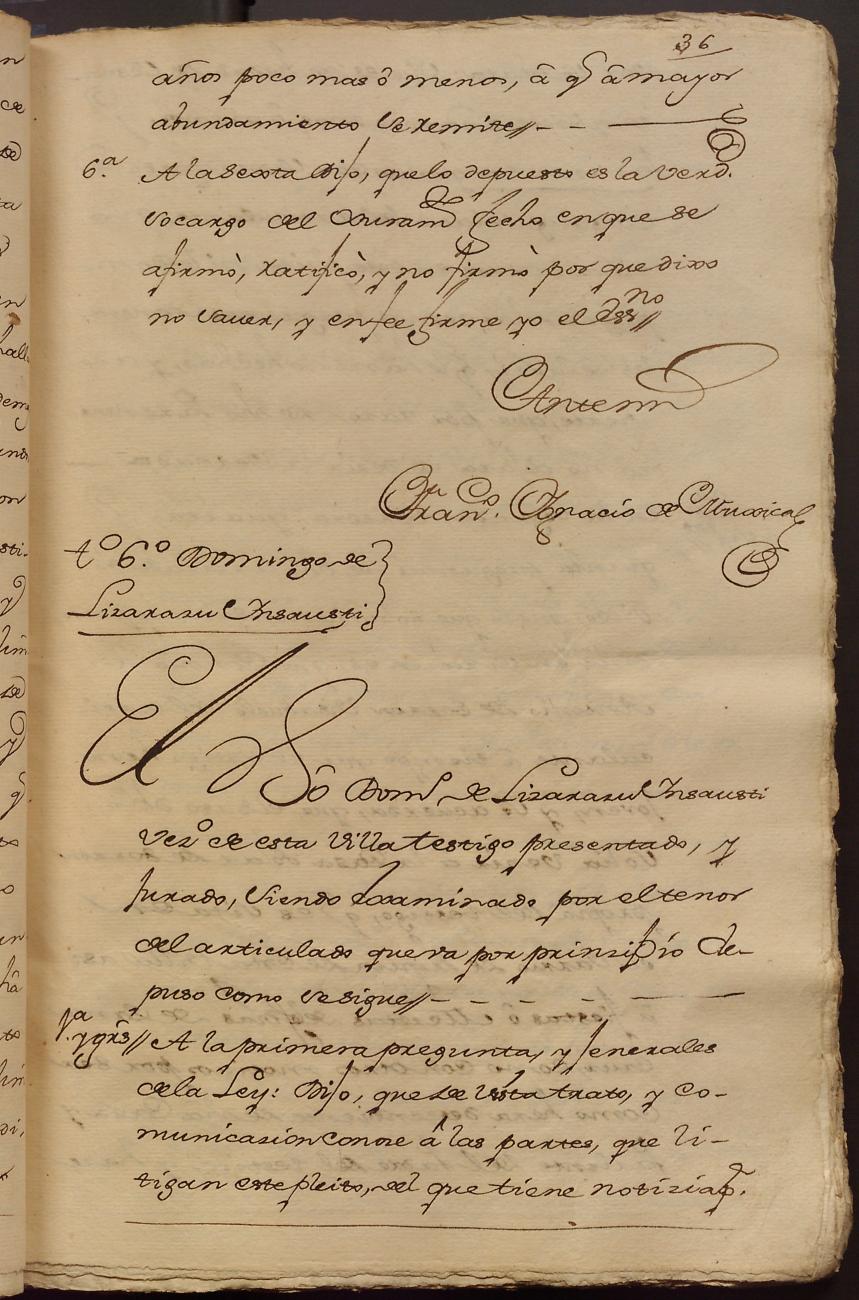 36
años poco mas ô menos, â q̃ â mayor
abundamiento se remite//- - —
6.ª A la sexta Dijo, que lo depuesto es la Verd.
so cargo del Juram.to fecho en que se
afirmò, ratificò, y no firmò por que dixo
no saver, y enfee firme yo el Ess.no//
Antemi
Fran.co Ignacio de Muxica
t.º 6.º Domingo de
Lizarazu Insausti
El
dho Dom.º de Lizarazu Insausti
vez.º de esta Villa testigo presentado, y
jurado, siendo examinado por el tenor
del articulado que va por prinsipio de-
puso como se sigue//- - - - —
1.ª
y grs// A la primera pregunta, y jenerales
de la Ley: Dijo, que de vista trato, y co-
municasion conose â las partes, que li-
tigan este pleito, del que tiene notizia